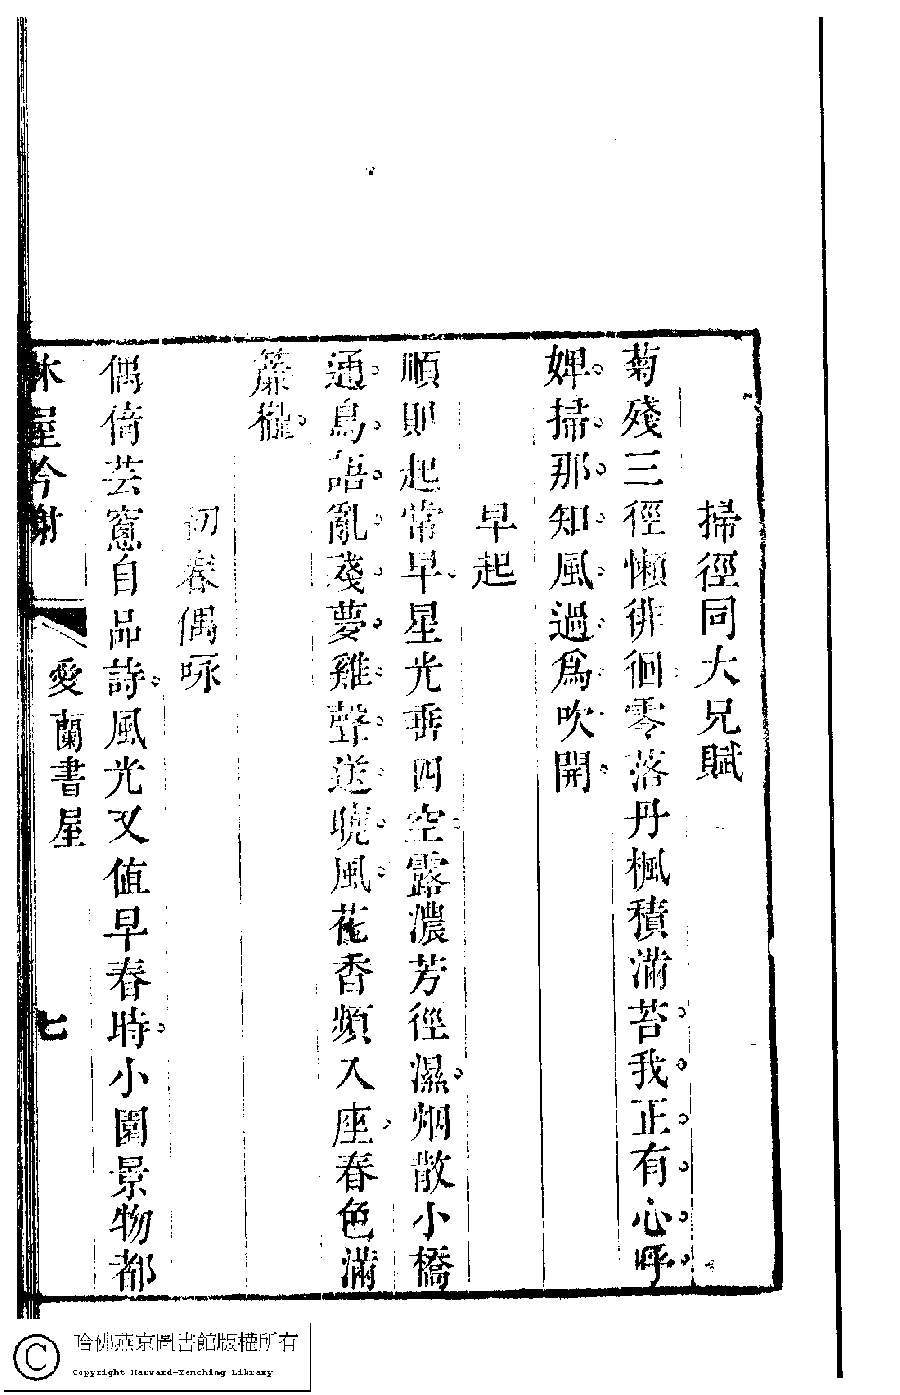 掃徑同大兄賦
菊殘三徑懶徘徊零落丹楓積滿苔我正有心呼
婢掃那知風過爲吹開
早起
順則起常早星光垂四空露濃芳徑濕烟散小橋
通鳥語亂殘夢雞聲送曉風花香頻入座春色滿
簾櫳
初春偶咏
偶倚芸窻自品詩風光又值早春時小園景物都
林屋吟榭
愛蘭書屋
七
哈佛燕京圖書館版權所有
Copyright Harvard-Yenching Library